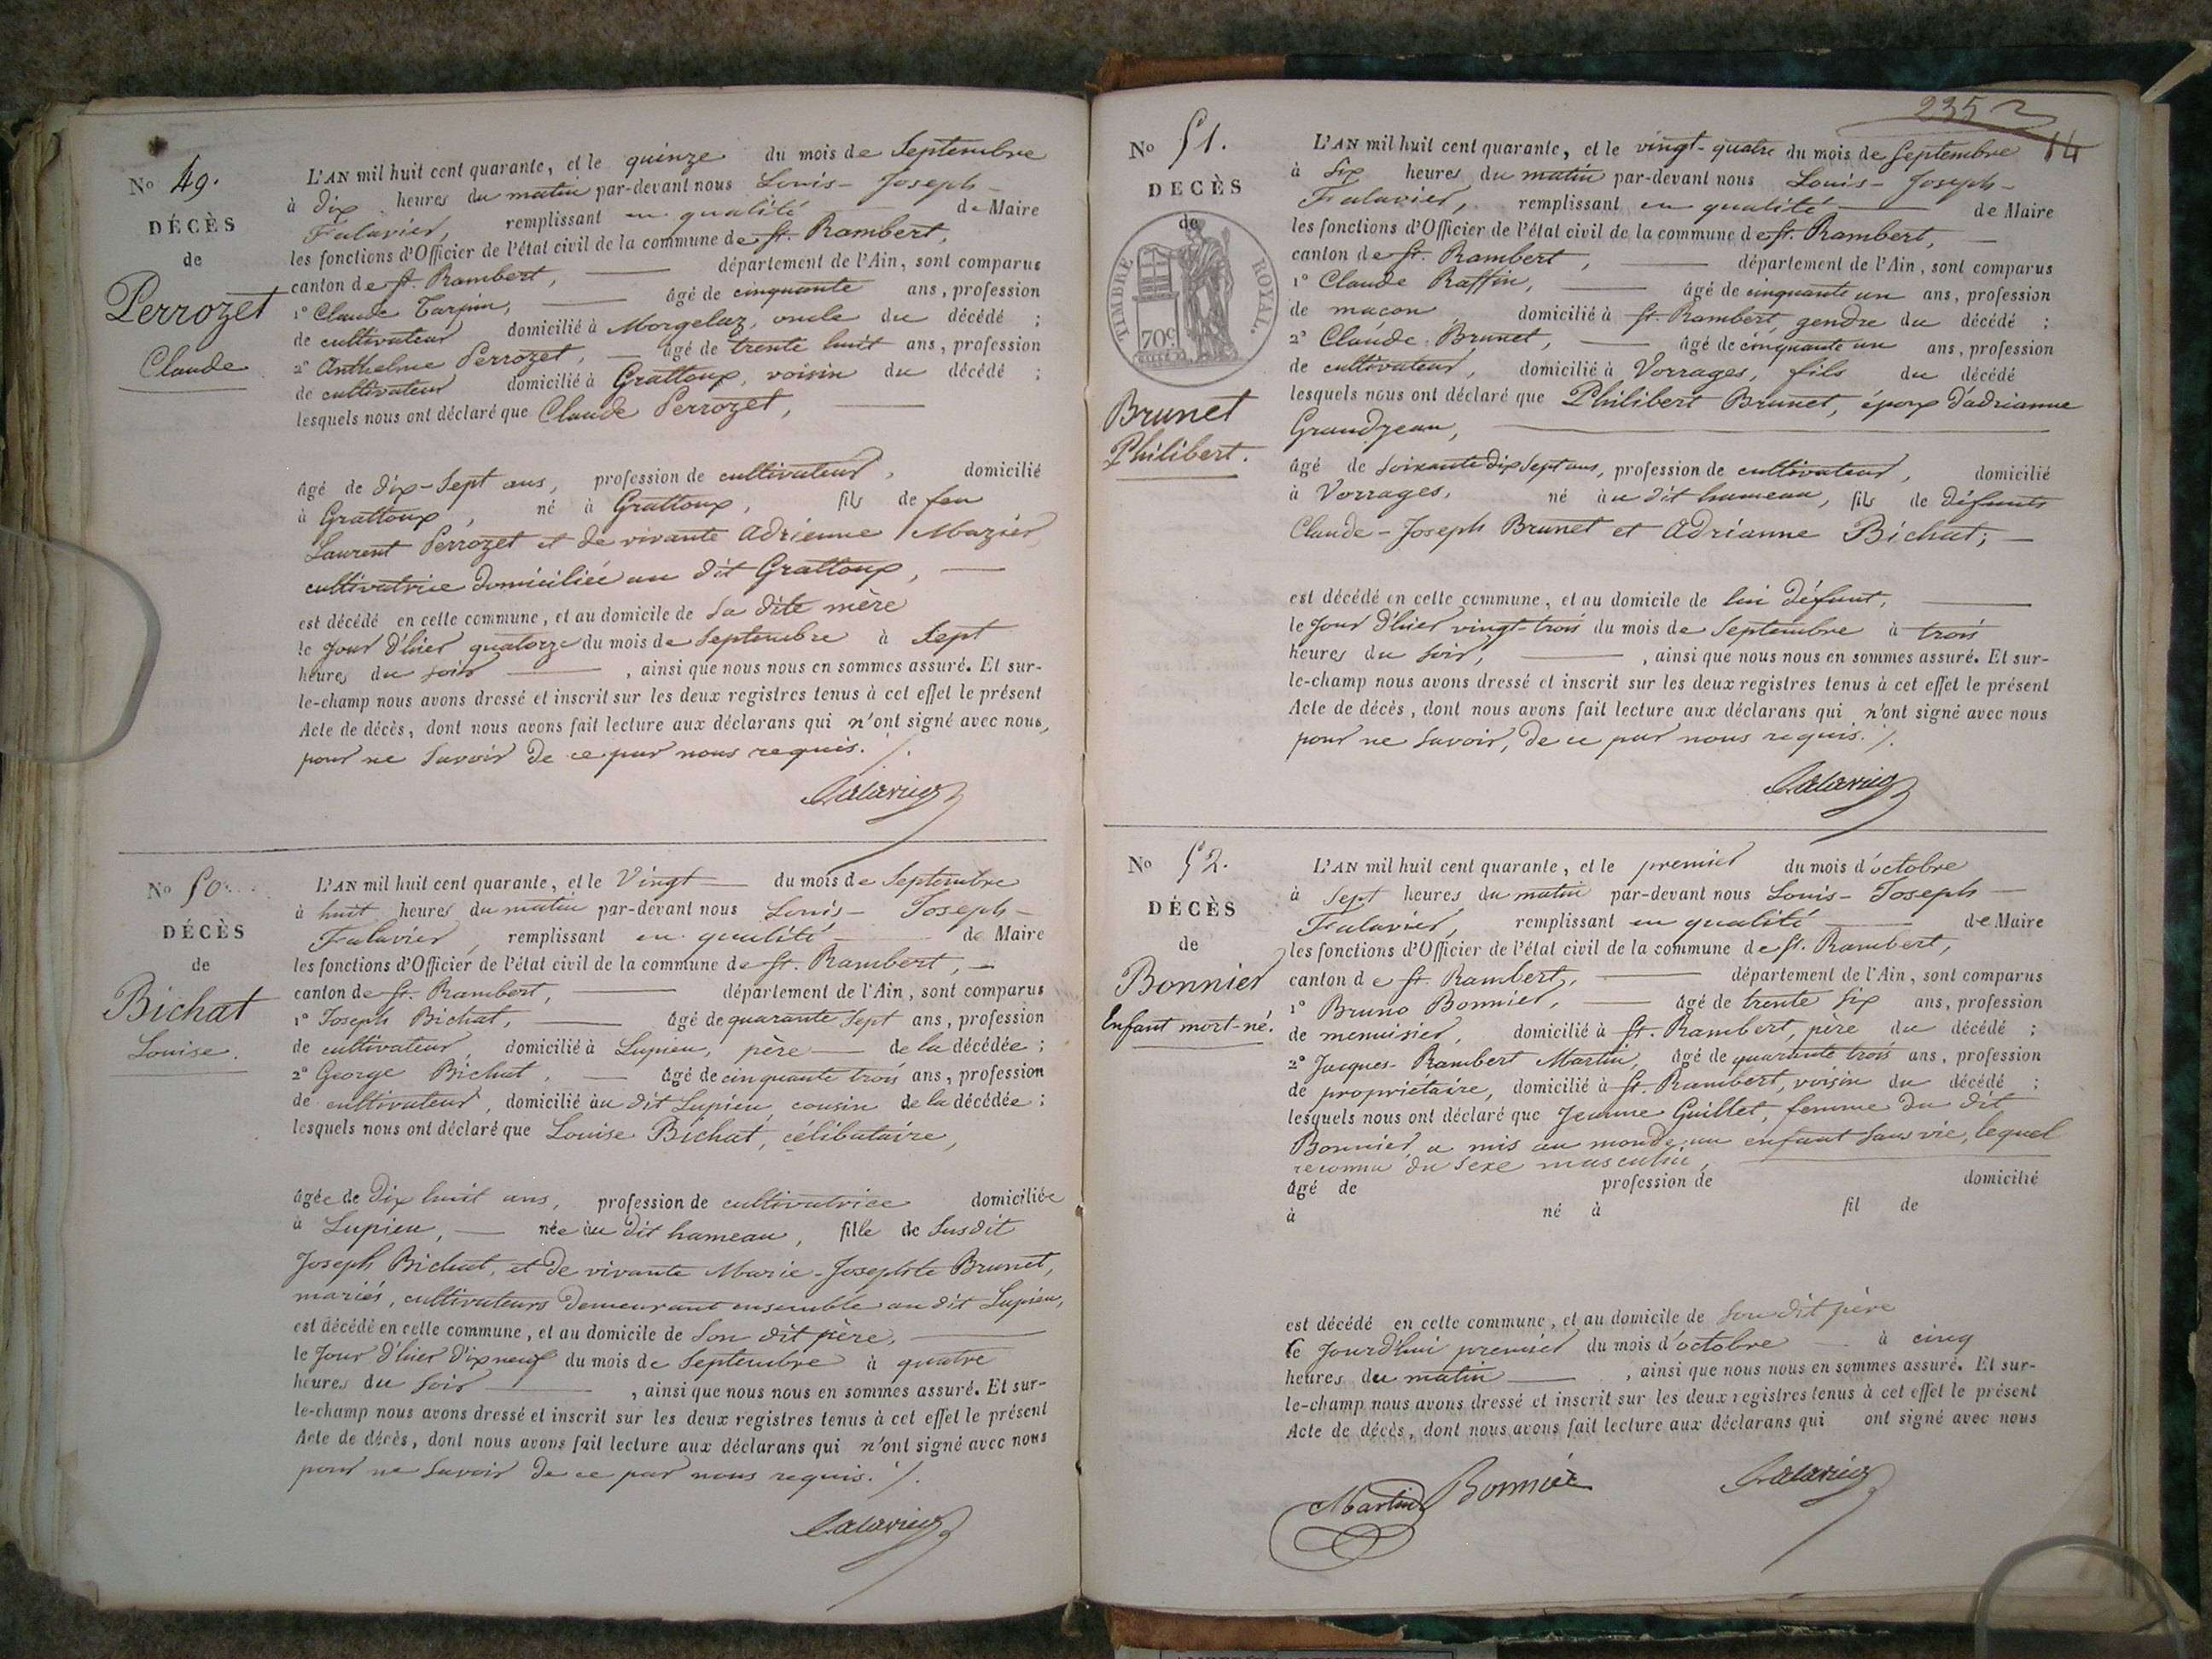 No 49.
DÉCÈS
de
Perrozet
Claude
L'AN mil huit cent quarante, et le quinze du mois de Septembre
à dix heures du matin par-devant nous Louis-Joseph-
Falavier, remplissant en qualité de Maire
les fonctions d'Officier de l'état civil de la commune de St. Rambert,
canton de St. Rambert, département de l'Ain, sont comparus
1° Claude Tarpin, âgé de cinquante ans, profession
de cultivateur domicilié à Morgelaz, oncle du décédé ;
2° Anthelme Perrozet, âgé de trente huit ans, profession
de cultivateur domicilié à Grattoup, voisin du décédé ;
lesquels nous ont déclaré que Claude Perrozet,
âgé de dix-sept ans, profession de cultivateur, domicilié
à Grattoup, né à Grattoup, fils de feu
Laurent Perrozet et de vivante Adrienne Mazier
cultivatrice domiciliée au dit Grattoup,
est décédé en cette commune, et au domicile de sa dite mère
le jour d'hier quatorze du mois de Septembre à Sept
heures du soir, ainsi que nous nous en sommes assuré. Et sur-
le-champ nous avons dressé et inscrit sur les deux registres tenus à cet effet le présent
Acte de décès, dont nous avons fait lecture aux déclarans qui n'ont signé avec nous,
pour ne savoir de ce par nous requis. /.
Falavier
No 50.
DÉCÈS
de
Bichat
Louise.
L'AN mil huit cent quarante, et le Vingt du mois de Septembre
à huit heures du matin par-devant nous Louis-Joseph-
Falavier, remplissant en qualité de Maire
les fonctions d'Officier de l'état civil de la commune de St. Rambert,
canton de St. Rambert, département de l'Ain, sont comparus
1° Joseph Bichat, âgé de quarante sept ans, profession
de cultivateur, domicilié à Lupieu, père de la décédée ;
2° George Bichat, âgé de cinquante trois ans, profession
de cultivateur, domicilié au dit Lupieu, cousin de la décédée ;
lesquels nous ont déclaré que Louise Bichat, célibataire,
âgée de dix huit ans, profession de cultivatrice domiciliée
à Lupieu, née au dit hameau, fille de susdit
Joseph Bichat, et de vivante Marie-Josephte Brunet,
mariés, cultivateurs demeurant ensemble au dit Lupieu,
est décédé en cette commune, et au domicile de son dit père,
le jour d'hier dixneuf du mois de Septembre à quatre
heures du soir, ainsi que nous nous en sommes assuré. Et sur-
le-champ nous avons dressé et inscrit sur les deux registres tenus à cet effet le présent
Acte de décès, dont nous avons fait lecture aux déclarans qui n'ont signé avec nous
pour ne savoir de ce par nous requis. /.
Falavier
235
14
No 51.
DÉCÈS
de
TIMBRE ROYAL.
70c
Brunet
Philibert.
L'AN mil huit cent quarante, et le vingt-quatre du mois de Septembre
à six heures du matin par-devant nous Louis-Joseph-
Falavier, remplissant en qualité de Maire
les fonctions d'Officier de l'état civil de la commune de St. Rambert,
canton de St. Rambert, département de l'Ain, sont comparus
1° Claude Raffin, âgé de cinquante un ans, profession
de maçon domicilié à St. Rambert, gendre du décédé ;
2° Claude Brunet, âgé de cinquante un ans, profession
de cultivateur, domicilié à Vorrages, fils du décédé
lesquels nous ont déclaré que Philibert Brunet, époux d'adrianne
Grandjean,
âgé de soixante dix sept ans, profession de cultivateur, domicilié
à Vorrages, né au dit hameau, fils de défunts
Claude-Joseph Brunet et Adrianne Bichat;
est décédé en cette commune, et au domicile de lui défunt,
le jour d'hier vingt-trois du mois de Septembre à trois
heures du soir, ainsi que nous nous en sommes assuré. Et sur-
le-champ nous avons dressé et inscrit sur les deux registres tenus à cet effet le présent
Acte de décès, dont nous avons fait lecture aux déclarans qui n'ont signé avec nous
pour ne savoir, de ce par nous requis. /.
Falavier
No 52.
DÉCÈS
de
Bonnier
Enfant mort-né.
L'AN mil huit cent quarante, et le premier du mois d'octobre
à sept heures du matin par-devant nous Louis-Joseph
Falavier, remplissant en qualité de Maire
les fonctions d'Officier de l'état civil de la commune de St. Rambert,
canton de St. Rambert, département de l'Ain, sont comparus
1° Bruno Bonnier, âgé de trente six ans, profession
de menuisier, domicilié à St. Rambert, père du décédé ;
2° Jacques-Rambert Martin, âgé de quarante trois ans, profession
de propriétaire, domicilié à St. Rambert, voisin du décédé ;
lesquels nous ont déclaré que Jeanne Guillet, femme du dit
Bonnier, a mis au monde un enfant sans vie, lequel
reconnu du sexe masculin,
âgé de profession de domicilié
à né à fil de
est décédé en cette commune, et au domicile de son dit père
le jourd'hui premier du mois d'octobre à cinq
heures du matin, ainsi que nous nous en sommes assuré. Et sur-
le-champ nous avons dressé et inscrit sur les deux registres tenus à cet effet le présent
Acte de décès, dont nous avons fait lecture aux déclarans qui ont signé avec nous
Martin Bonnier Falavier